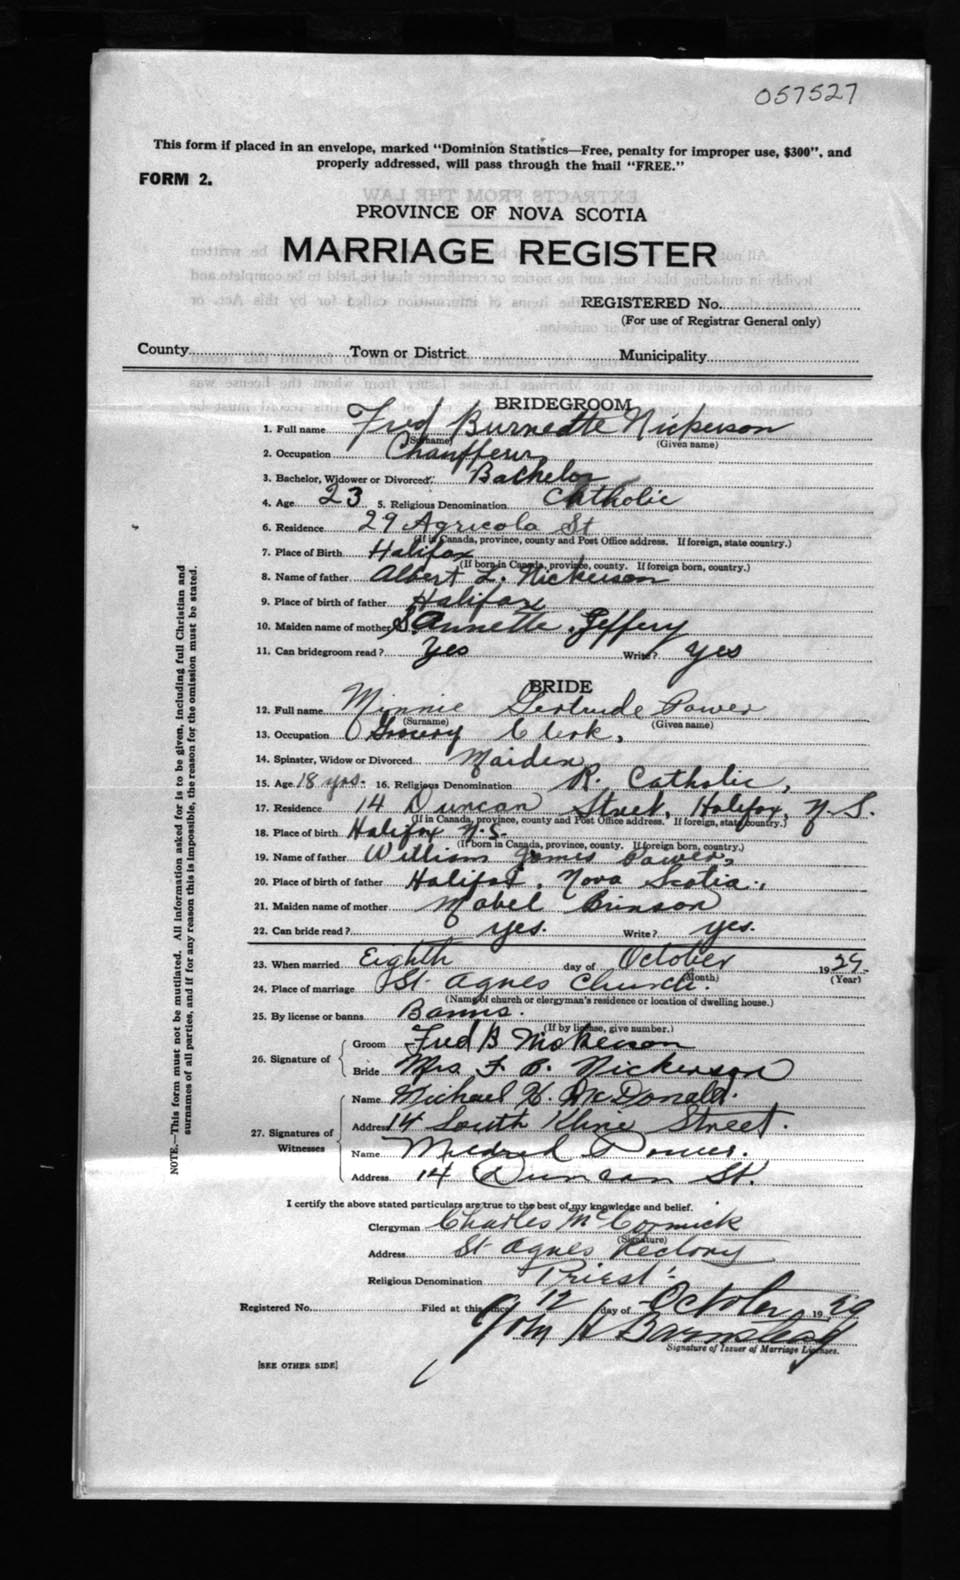 057527
This form if placed in an envelope, marked "Dominion Statistics—Free, penalty for improper use, $300", and
properly addressed, will pass through the mail "FREE."
FORM 2.
PROVINCE OF NOVA SCOTIA
MARRIAGE REGISTER
REGISTERED No.
(For use of Registrar General only)
County Town or District Municipality
BRIDEGROOM
1. Full name Fred Burnette Nickerson
(Surname) (Given name)
2. Occupation Chauffeur
3. Bachelor, Widower or Divorced Bachelor
4. Age 23 5. Religious Denomination Catholic
6. Residence 29 Agricola St
(If in Canada, province, county and Post Office address. If foreign, state country.)
7. Place of Birth Halifax
(If born in Canada, province, county. If foreign born, country.)
8. Name of father Albert L. Nickerson
9. Place of birth of father Halifax
10. Maiden name of mother S Annette Jeffery
11. Can bridegroom read? Yes Write? yes
BRIDE
12. Full name Minnie Gertrude Power
(Surname) (Given name)
13. Occupation Grocery Clerk,
14. Spinster, Widow or Divorced Maiden
15. Age 18 yrs. 16. Religious Denomination R. Catholic,
17. Residence 14 Duncan Street, Halifax, N.S.
(If in Canada, province, county and Post Office address. If foreign, state country.)
18. Place of birth Halifax N.S.
(If born in Canada, province, county. If foreign born, country.)
19. Name of father William James Power,
20. Place of birth of father Halifax, Nova Scotia.,
21. Maiden name of mother Mabel Brinson
22. Can bride read? yes. Write? yes.
23. When married Eighth day of October 1929.
(Month) (Year)
24. Place of marriage St. Agnes Church.
(Name of church or clergyman's residence or location of dwelling house.)
25. By license or banns Banns.
(If by license, give number.)
26. Signature of
Groom Fred B Nickerson
Bride Mrs F. B. Nickerson
27. Signatures of Witnesses
Name Michael H. McDonald.
Address 14 South Kline Street.
Name Mildred Power.
Address 14 Duncan St.
I certify the above stated particulars are true to the best of my knowledge and belief.
Clergyman Charles McCormick
(Signature)
Address St. Agnes Rectory
Religious Denomination Priest
Registered No. Filed at this office 12 day of October 1929
John H Barnstead
Signature of Issuer of Marriage Licenses.
[SEE OTHER SIDE]
NOTE.—This form must not be mutilated. All information asked for is to be given, including full Christian and
surnames of all parties, and if for any reason this is impossible, the reason for the omission must be stated.